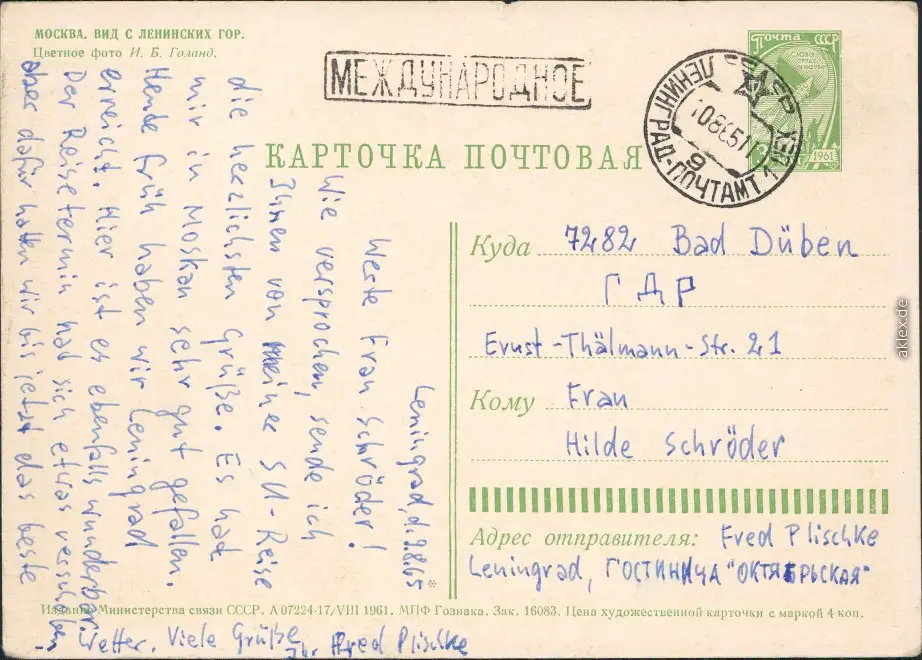 МОСКВА. ВИД С ЛЕНИНСКИХ ГОР.
Цветное фото И. Б. Голанд.
МЕЖДУНАРОДНОЕ
Почта СССР
1961
ЛЕНИНГРАД-ПОЧТАМТ
КАРТОЧКА ПОЧТОВАЯ
Leningrad, d. 9.8.65
Werte Frau Schröder!
Wie versprochen, sende ich
Ihnen von meiner SU-Reise
die herzlichsten Grüße. Es hat
mir in Moskau sehr gut gefallen.
Heute früh haben wir Leningrad
erreicht. Hier ist es ebenfalls wunderbar.
Der Reisetermin hat sich etwas verschoben
aber dafür hatten wir bis jetzt das beste
Wetter. Viele Grüße
Ihr Fred Plischke
Куда 7282 Bad Düben
ГДР
Ernst-Thälmann-Str. 21
Кому Frau
Hilde Schröder
Адрес отправителя: Fred Plischke
Leningrad, ГОСТИНИЦА "ОКТЯБРЬСКАЯ"
Издание Министерства связи СССР. А 07224-17/VIII 1961. МПФ Гознака. Зак. 16083. Цена художественной карточки с маркой 4 коп.
aklex.de